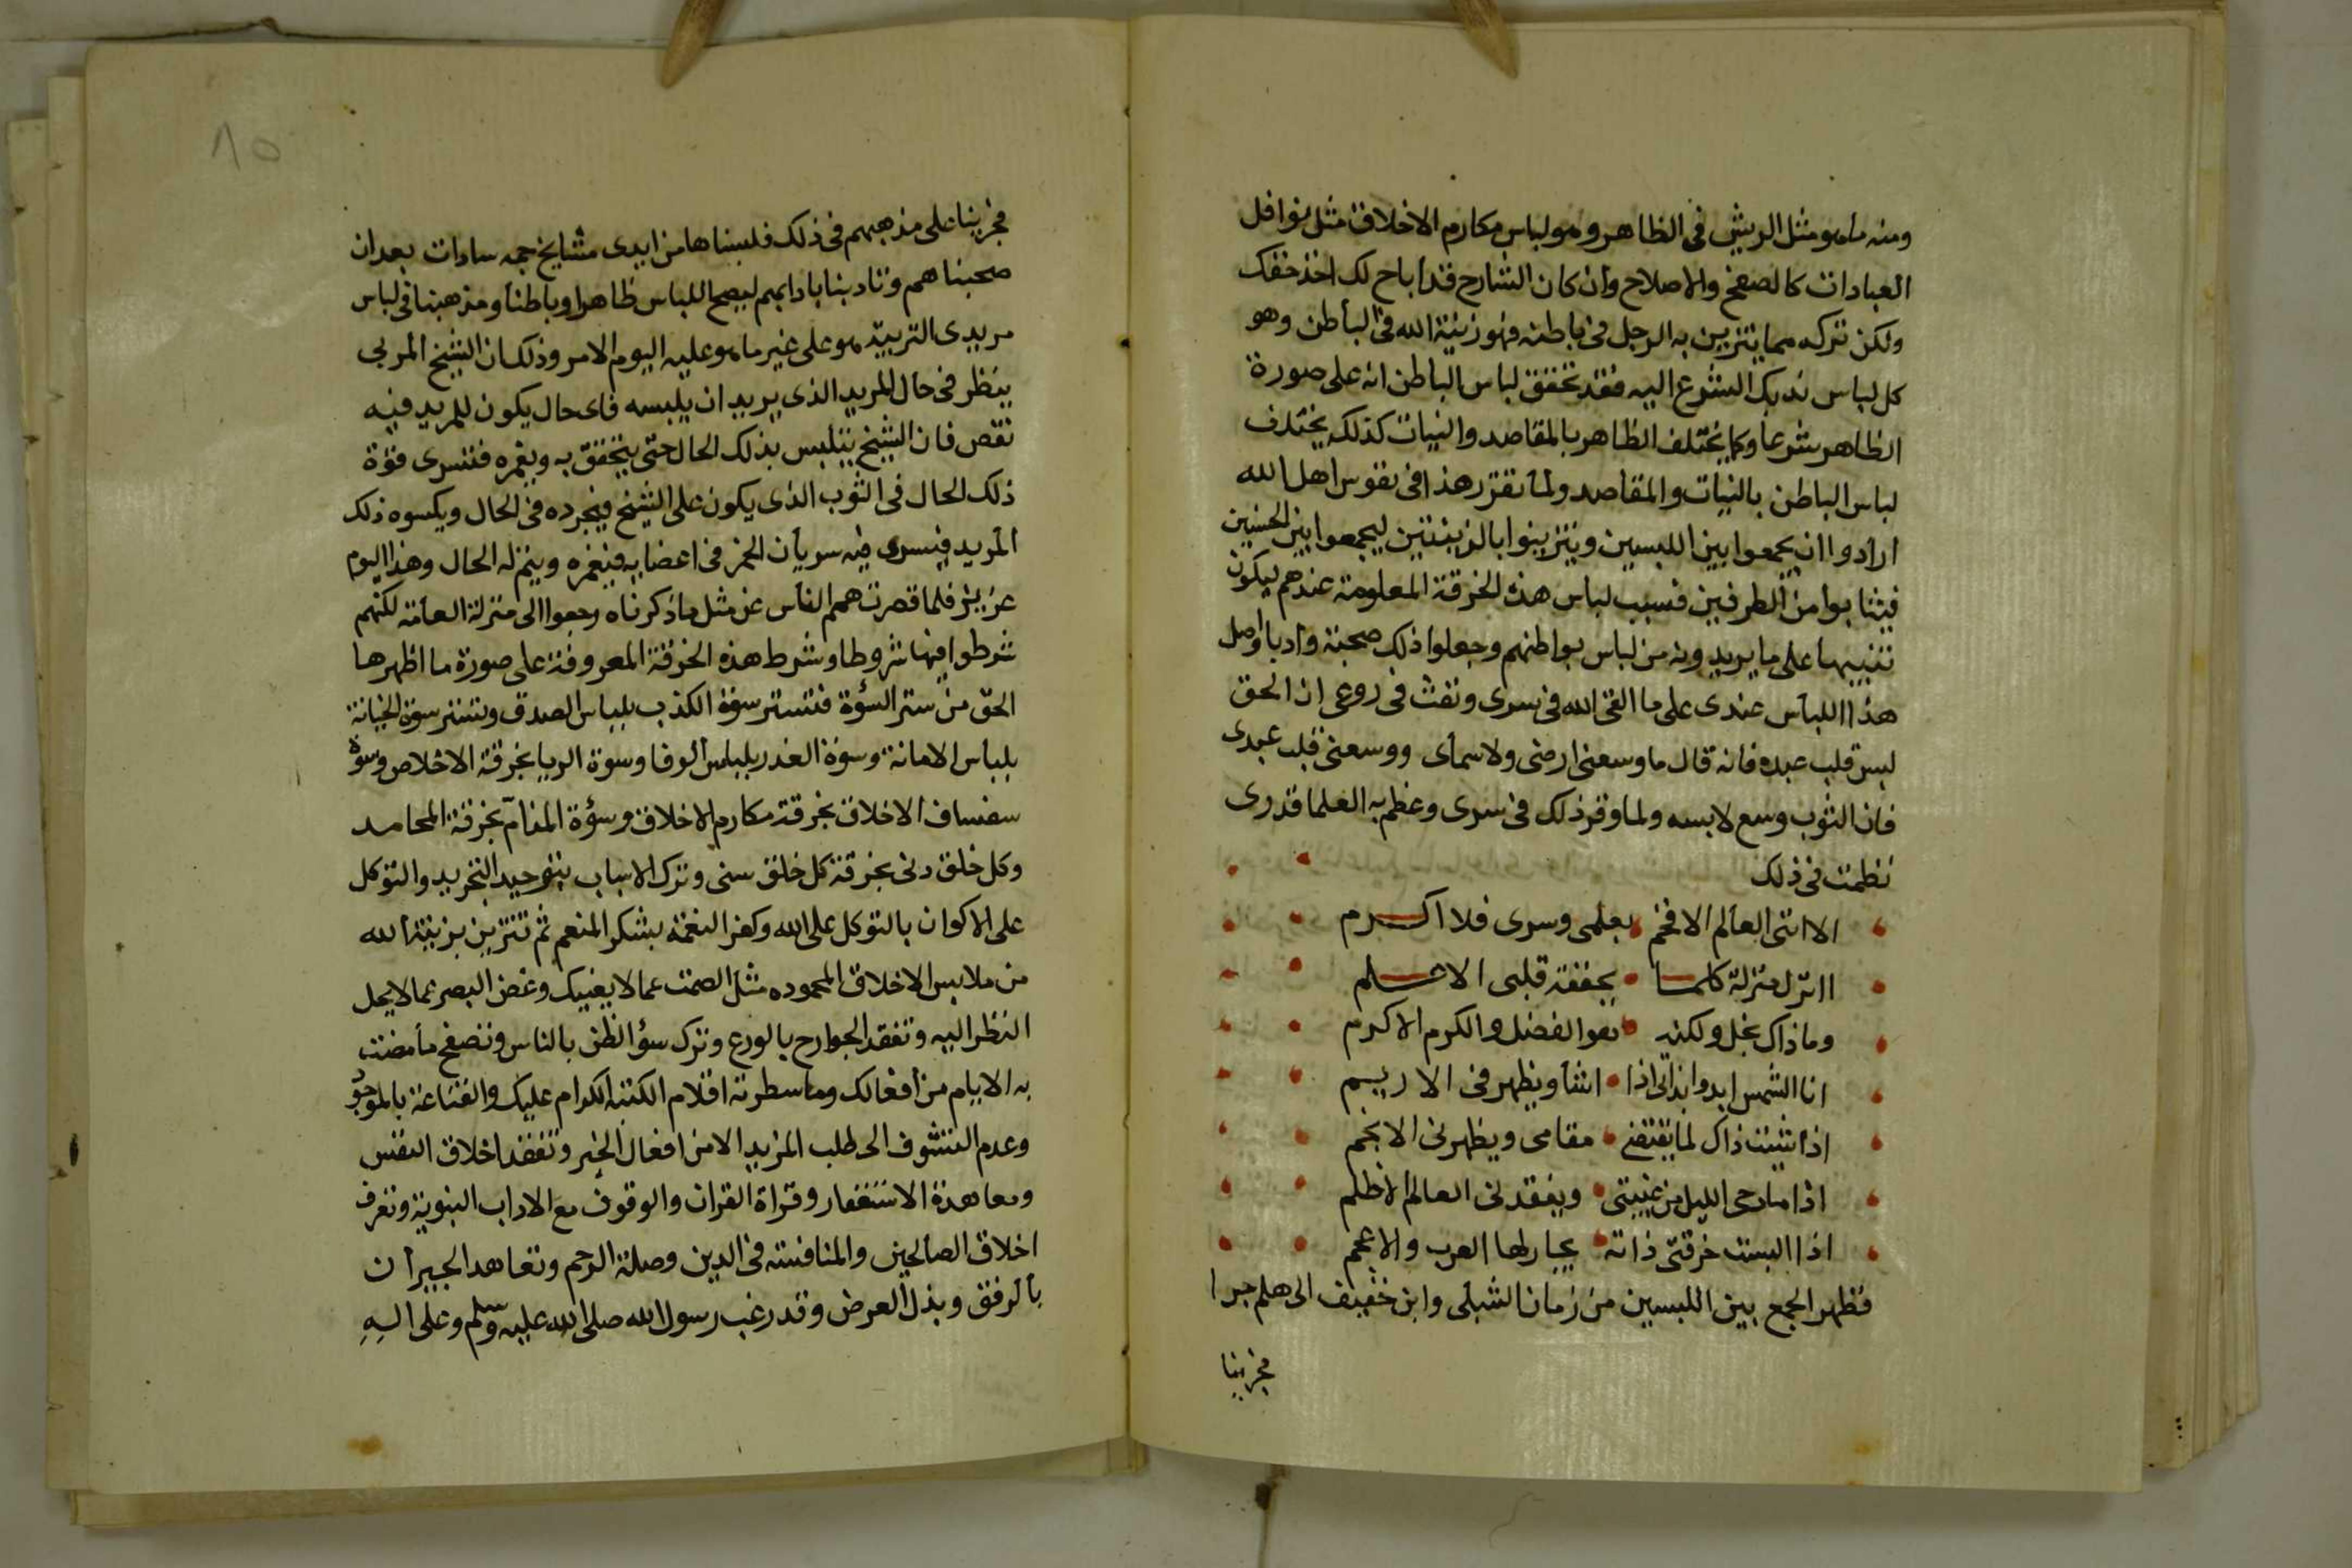 ومنه ما هو مثل الريش فى الظاهر وهو لباس مكارم الاخلاق مثل نوافل
العبادات كالصفح والاصلاح وان كان الشارح قد اباح لك اخذ حقك
ولكن تركه مما يتزين به الرجل فى باطنه فهو زينة الله فى الباطن وهو
كل لباس ندبك الشرع اليه فقد تحقق لباس الباطن انه على صورة
الظاهر شرعا وكما يختلف الظاهر بالمقاصد والنيات كذلك يختلف
لباس الباطن بالنيات والمقاصد ولما تقرر هذا فى نفوس اهل الله
ارادوا ان يجمعوا بين اللبسين ويتزينوا بالزينتين ليجمعوا بين الحسنيين
فيثابوا من الطرفين فسبب لباس هذه الخرقة المعلومة عندهم ليكون
تنبيها على ما يريدونه من لباس بواطنهم وجعلوا ذلك صحبة وادبا واصل
هذا اللباس عندى على ما القى الله فى سرى ونفث فى روعى ان الحق
لبس قلب عبده فانه قال ما وسعنى ارضى ولا سمأى ووسعنى قلب عبدى
فان الثوب وسع لابسه ولما وقر ذلك فى سرى وعظم به العلما قدرى
نظمت فى ذلك
الا اننى العالم الافخم بعلمى وسرى فلا اكرم
اانزل منزلة كلما يحققه قلبى الاعلم
وما ذاك بخل ولكنه هو الفضل والكرم الاكرم
انا الشمس ابدوا بذاتى اذا اشأ ويظهر فى الاريسم
اذا شيت ذاك لما يقتضى مقامى ويظهرنى الانجم
اذا ما دجى الليل من غيبتى ويفقدنى العالم الاظلم
اذا البست خرقتى ذاته يحار لها العرب والاعجم
فظهر الجمع بين اللبسين من زمان الشبلى وابن خفيف الى هلم جرا
فجرينا
١٥
فجرينا على مذهبهم فى ذلك فلبسناها من ايدى مشايخ جمه سادات بعد ان
صحبناهم وتادبنا بادابهم ليصح اللباس ظاهرا وباطنا ومذهبنا فى لباس
مريدى التربية هو على غير ما هو عليه اليوم الامر وذلك ان الشيخ المربى
ينظر فى حال المريد الذى يريد ان يلبسه فاى حال يكون للمريد فيه
نقص فان الشيخ يتلبس بذلك الحال حتى يتحقق به ويغمره فتسرى قوة
ذلك الحال فى الثوب الذى يكون على الشيخ فيجرده فى الحال ويكسوه ذلك
المريد فيسرى فيه سريان الخمر فى اعضايه فيغمره ويتم له الحال وهذا اليوم
عزيز فلما قصرت همم الناس عن مثل ما ذكرناه رجعوا الى منزلة العامة لكنهم
شرطوا فيها شروطا وشرط هذه الخرقة المعروفة على صورة ما اظهرها
الحق من ستر السؤة فتستر سوة الكذب بلباس الصدق وتستر سوة الخيانة
بلباس الامانة وسوة الغدر بلباس الوفا وسوة الريا بخرقة الاخلاص وسوة
سفساف الاخلاق بخرقة مكارم الاخلاق وسؤة المذام بخرقة المحامد
وكل خلق دنى بخرقة كل خلق سنى وترك الاسباب بتوحيد التجريد والتوكل
على الاكوان بالتوكل على الله وكفر النعمة بشكر المنعم ثم تتزين بزينة الله
من ملابس الاخلاق المحموده مثل الصمت عما لا يغنيك وغض البصر عما لا يحل
النظر اليه وتفقد الجوارح بالورع وترك سؤ الظن بالناس وتصفح ما مضت
به الايام من افعالك وما سطرته اقلام الكتبه الكرام عليك والقناعة بالموجود
وعدم التشوف الى طلب المزيد الا من افعال الخير وتفقد اخلاق النفس
ومعاهدة الاستغفار وقراة القران والوقوف مع الاداب النبوية وتعرف
اخلاق الصالحين والمنافسة فى الدين وصلة الرحم وتعاهد الجيران
بالرفق وبذل العرض وقد رغب رسول الله صلى الله عليه وسلم وعلى اله